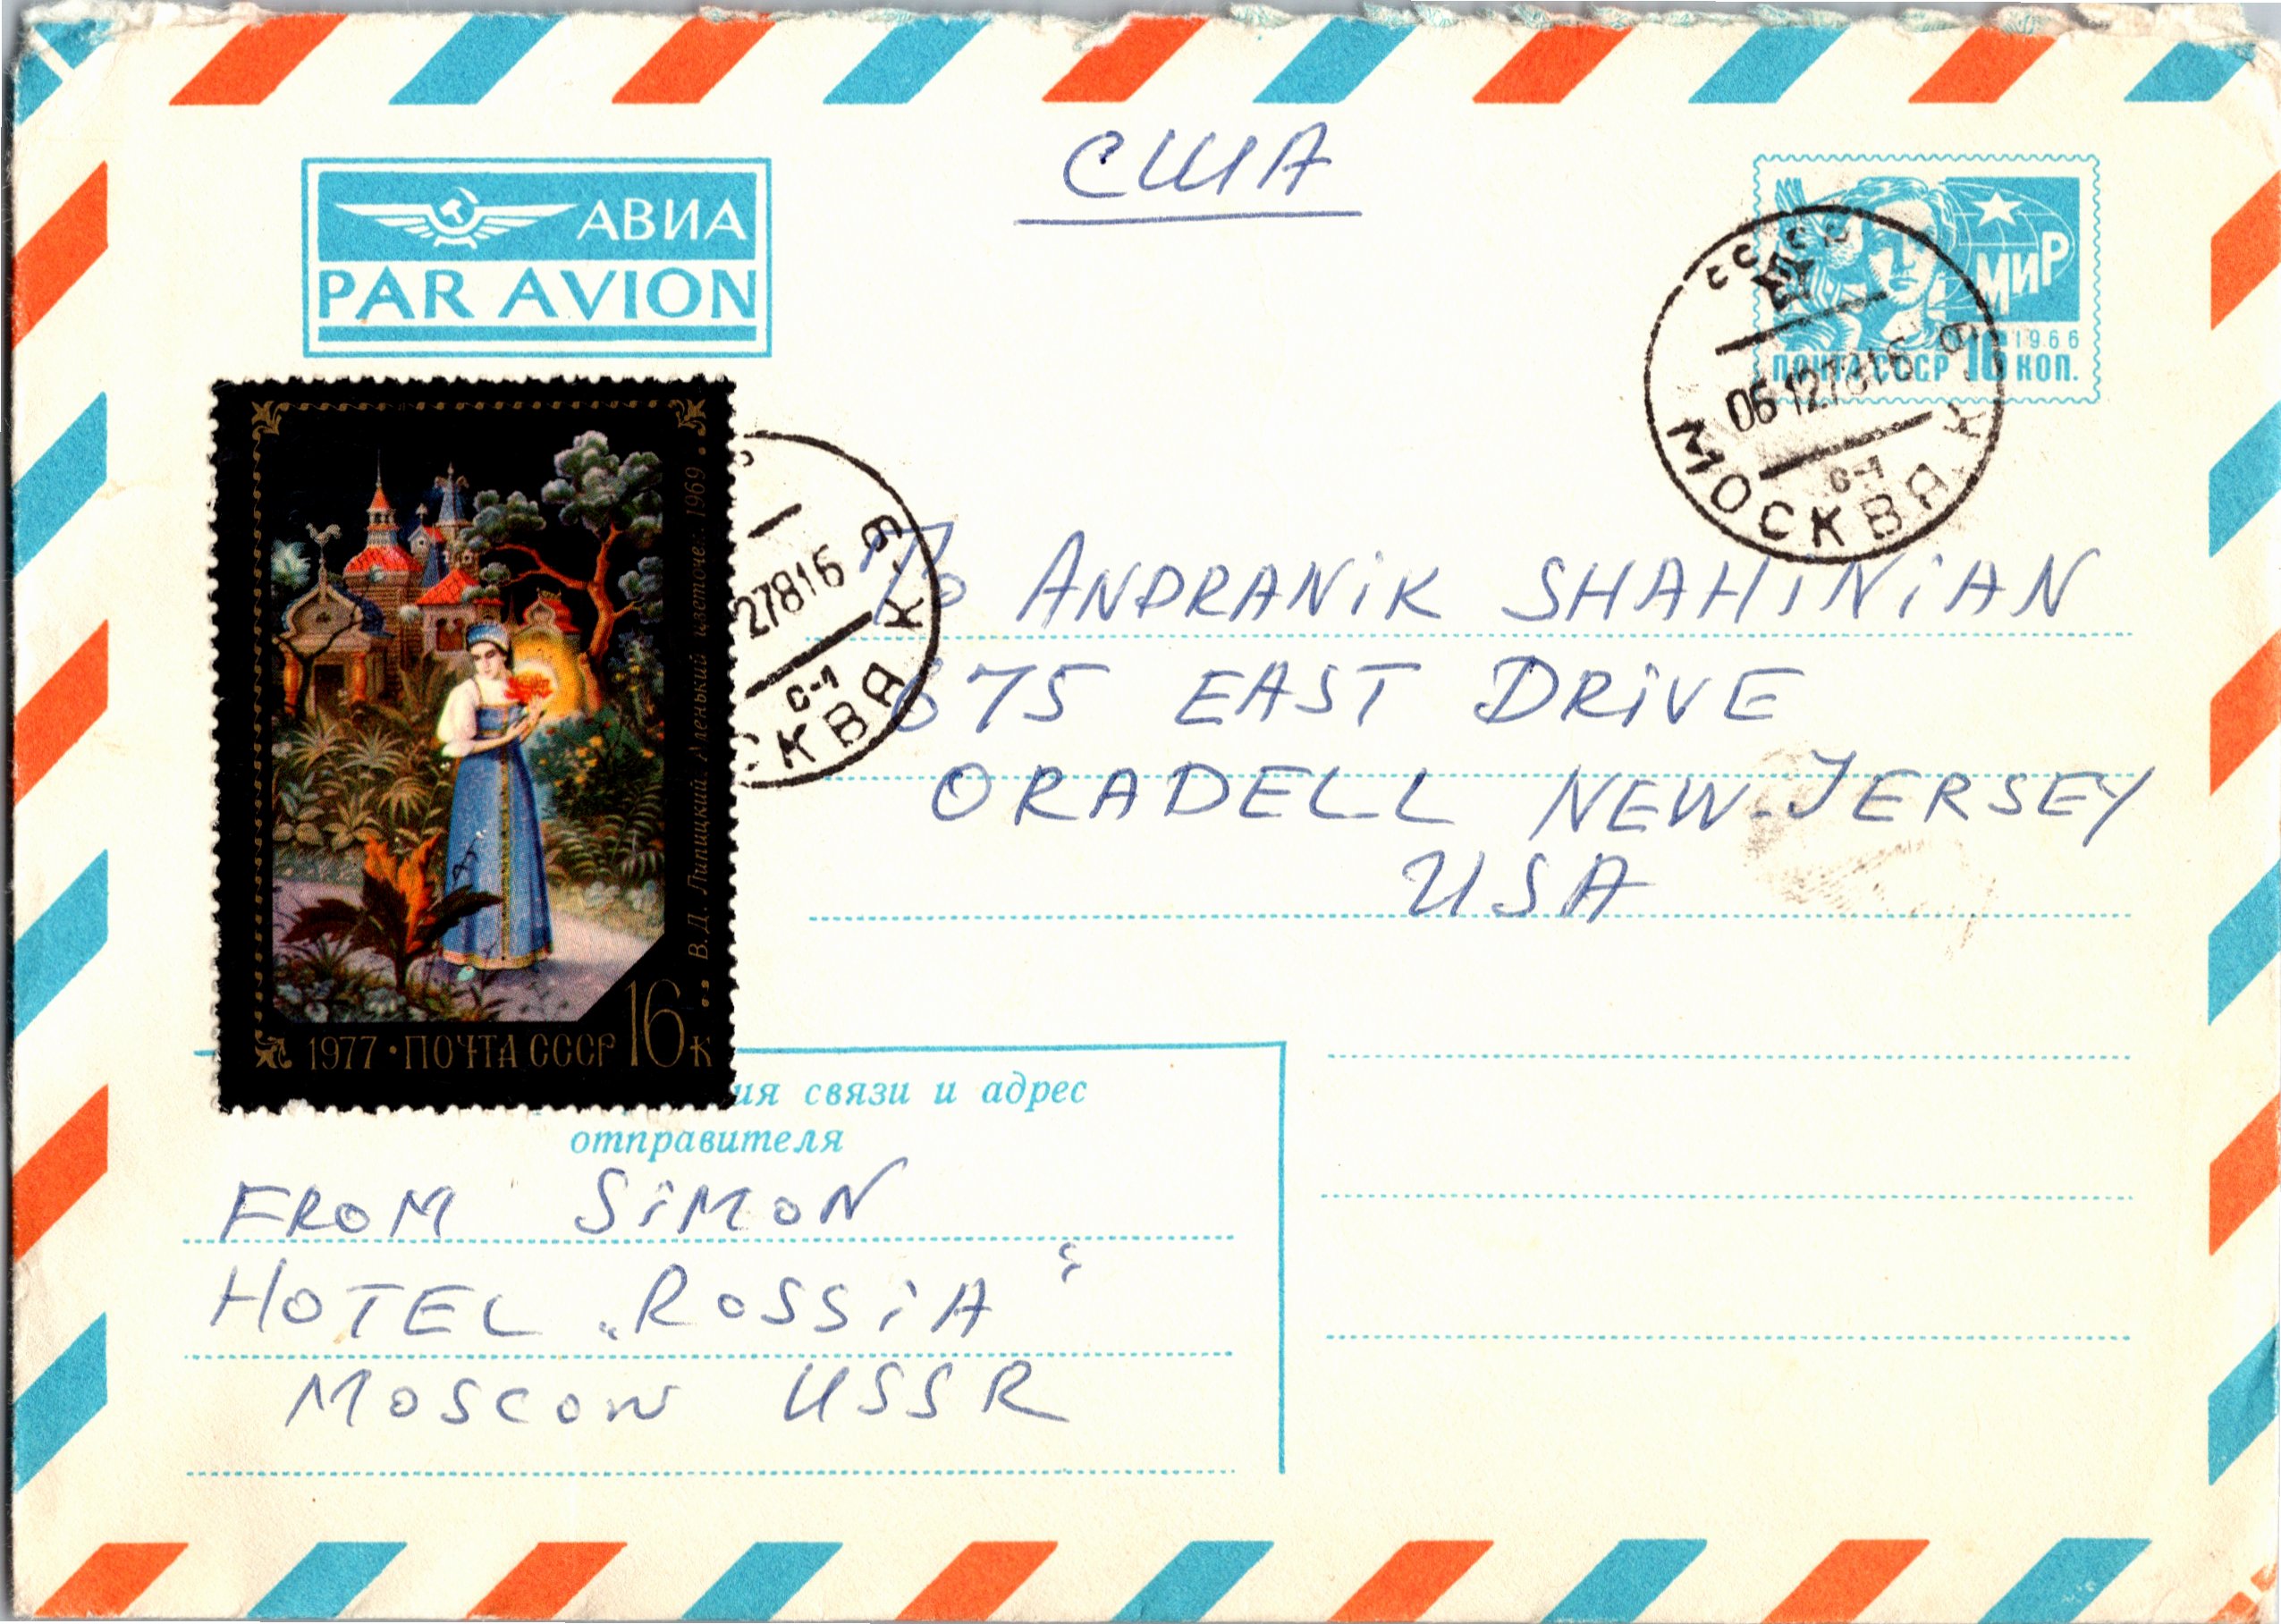 США
АВИА
PAR AVION
МИР
1966
ПОЧТА СССР 16 КОП.
СССР
06127816
МОСКВА К-9
С-1
27816
СКВА К-9
С-1
В.Д. Липицкий. Аленький цветочек. 1969
1977 • ПОЧТА СССР 16 к
To ANDRANIK SHAHINIAN
675 EAST DRIVE
ORADELL NEW-JERSEY
USA
ия связи и адрес
отправителя
FROM SIMON
HOTEL „ROSSIA“
MOSCOW USSR